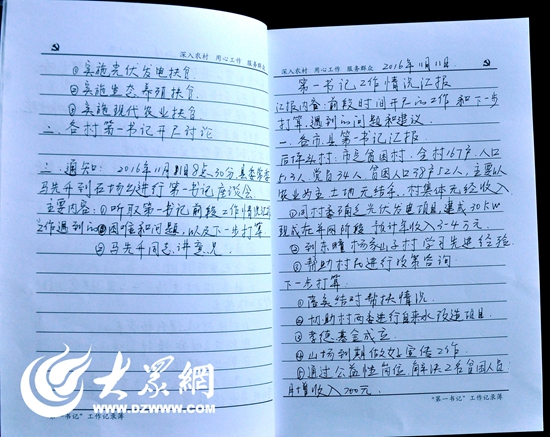 深入农村 用心工作 服务群众
③实施光伏发电扶贫
④实施生态养殖扶贫
⑤实施现代农业扶贫
二.各村第一书记开展讨论
三.通知: 2016年11月 日8点30分,县委常委
马先千到在场乡进行第一书记座谈会
主要内容:①听取第一书记前段工作情况
工作遇到的困难和问题,以及下一步打算
②马先千同志讲意见
"第一书记"工作记录簿
深入农村 用心工作 服务群众
2016年11月11日
第一书记工作情况汇报
汇报内容:前段时间开展的工作和下一步
打算、遇到的问题和建议
一.各市县第一书记汇报
村:市定贫困村,全村167户,人口
513人,党员34人,贫困人口38户52人,主要以
农业为主,土地元结余,村集体无经收入
①同村委确定光伏发电项目,建成30KW
现或在并网阶段 预计年收入3-4万元
②到东 杨 村学习先进经验
③帮助村民进行政策咨询
下一步打算:
①落实结对帮扶情况
②协助村两委进行自来水改造项目
③孝德基金成立
④山场到期做好宣传工作
⑤通过公益性岗位,解决2名贫困人员
月增收入700元.
"第一书记"工作记录簿
大众网
WWW.DZWWW.COM